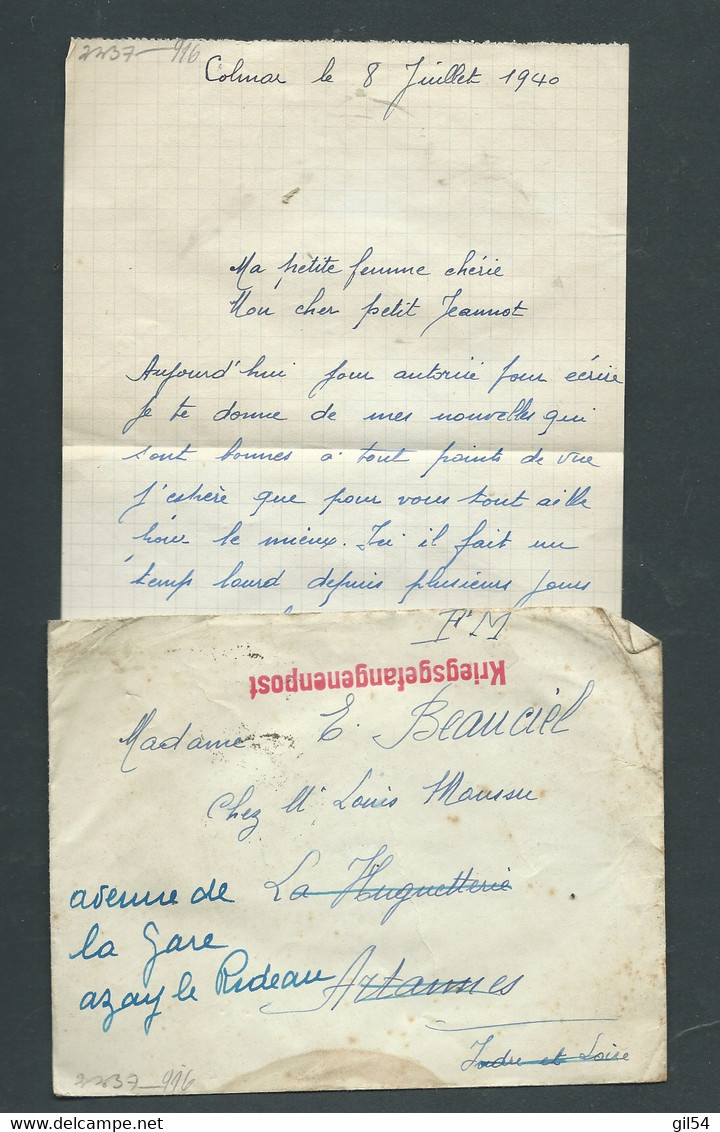 2237-916
Colmar le 8 Juillet 1940
Ma petite femme chérie
Mon cher petit Jeannot
Aujourd'hui jour autorisé pour écrire
je te donne de mes nouvelles qui
sont bonnes à tout points de vue
j'espère que pour vous tout aille
pour le mieux. Ici il fait un
temp lourd depuis plusieurs jours
FM
Kriegsgefangenenpost
Madame E. Beauciel
Chez Mr Louis Moussu
La Huguetterie
avenue de
la Gare
azay le Rideau
Artannes
Indre et Loire
2237-916
delcampe.net
gil54